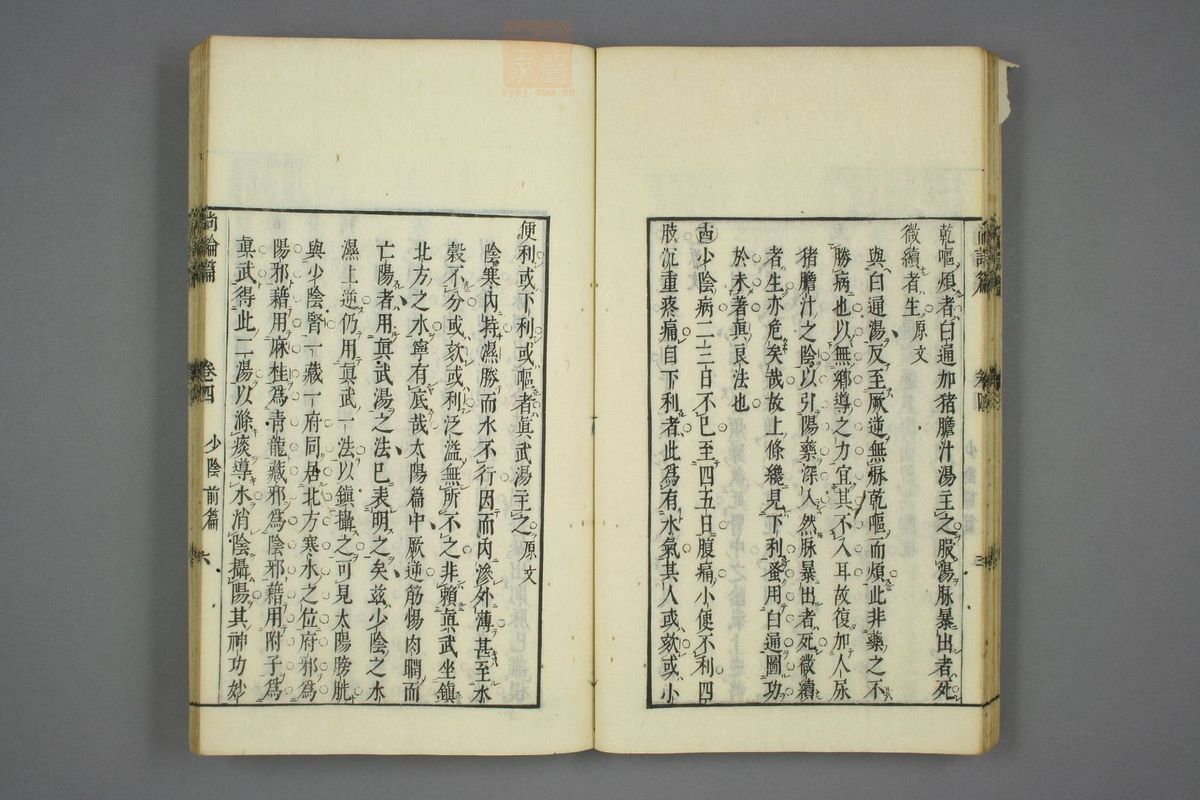 乾嘔煩者白通加猪膽汁湯主之服湯脉暴出者死
微續者生原文
與白通湯反至厥逆無脉乾嘔而煩此非藥之不
勝病也以無鄉導之力宜其不入耳故復加人尿
猪膽汁之陰以引陽藥深入然脉暴出者死微續
者生亦危矣哉故上條纔見下利蚤用白通圖功
於未著眞良法也
少陰病二三日不已至四五日腹痛小便不利四
肢沉重疼痛自下利者此爲有水氣其人或欬或小
便利或下利或嘔者眞武湯主之原文
陰寒内持濕勝而水不行因而内滲外薄甚至水
穀不分或欬或利泛溢無所不之非頼眞武坐鎮
北方之水寧有底哉太陽篇中厥逆筋惕肉瞤而
亡陽者用眞武湯之法已表明之矣兹少陰之水
濕上逆仍用眞武一法以鎮攝之可見太陽膀胱
與少陰腎一藏一府同居北方寒水之位府邪爲
陽邪藉用麻桂爲靑龍藏邪爲陰邪藉用附子爲
眞武得此二湯以滌痰導水消陰攝陽其神功妙
尚論篇 卷四 少陰前篇 六